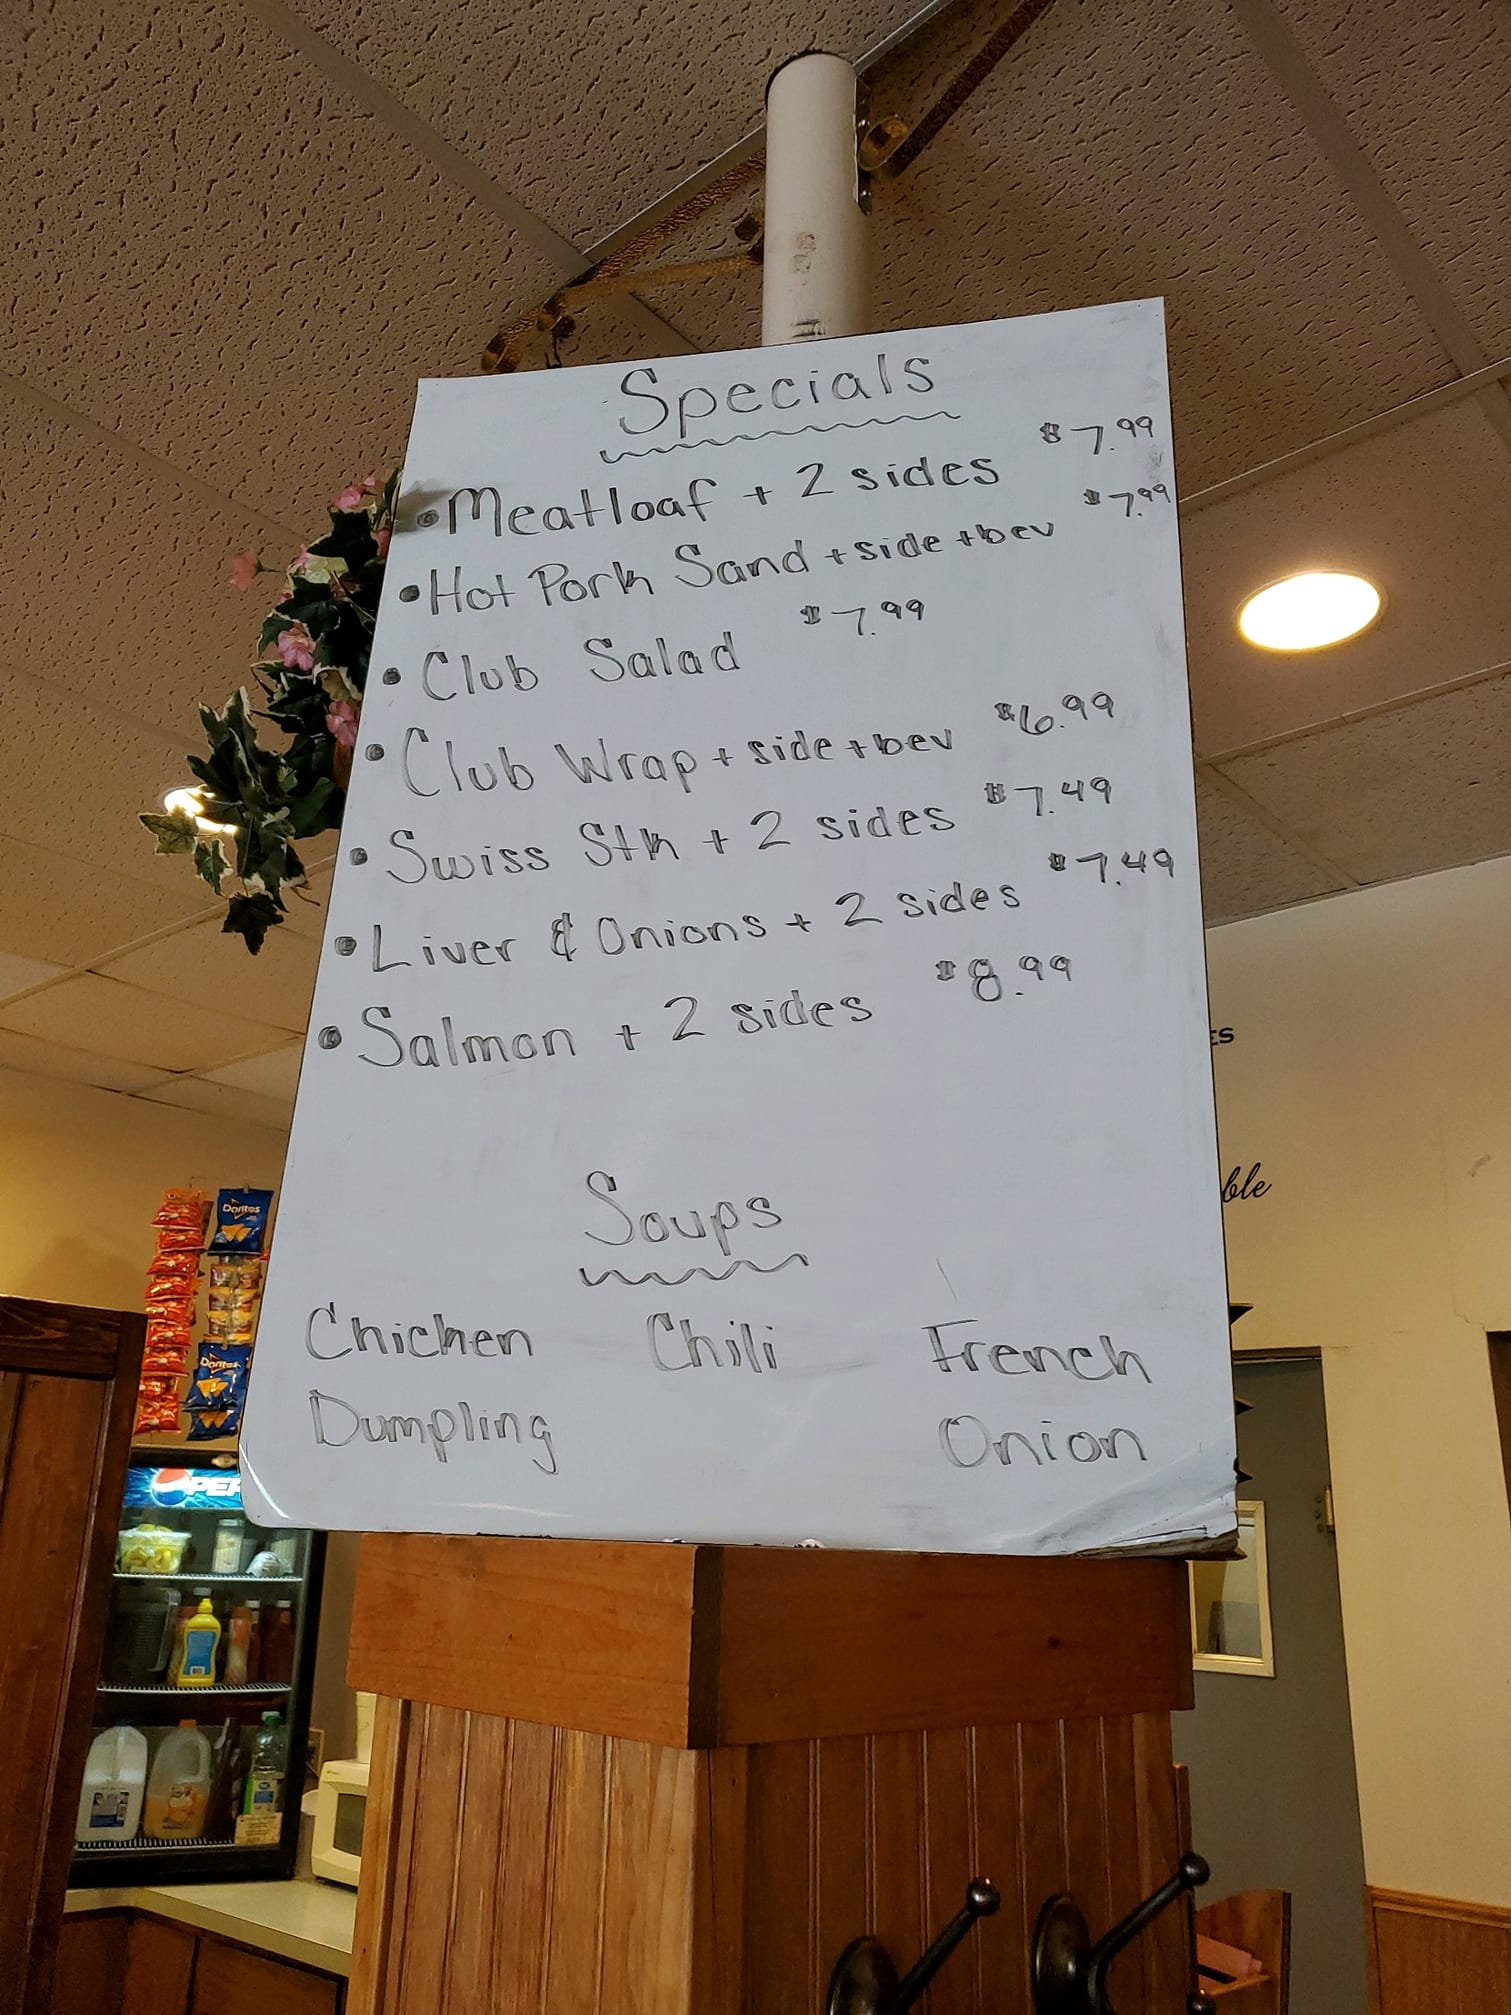 Specials
• Meatloaf + 2 sides $7.99
• Hot Pork Sand + side + bev $7.99
• Club Salad $7.99
• Club Wrap + side + bev $6.99
• Swiss Stk + 2 sides $7.49
• Liver & Onions + 2 sides $7.49
• Salmon + 2 sides $8.99
Soups
Chicken Chili French
Dumpling Onion
Doritos
Doritos